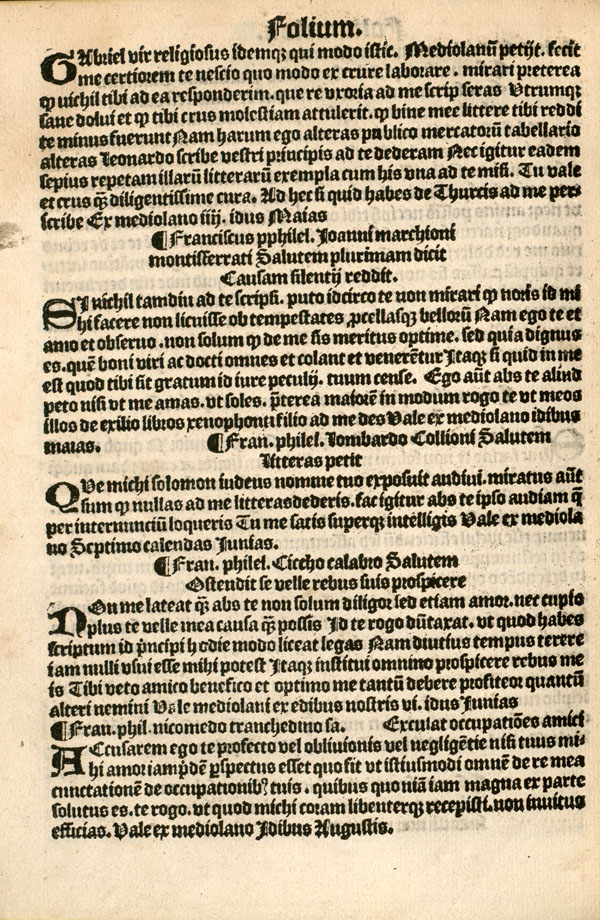 Folium.
GAbriel vir religiosus idemqꝫ qui modo istic. Mediolanū petijt. fecit
me certiorem te nescio quo modo ex crure laborare. mirari preterea
ꝙ nichil tibi ad ea responderim. que re vxoria ad me scrip seras Vtrumqꝫ
sane dolui et ꝙ tibi crus molestiam attulerit. ꝙ bine mee littere tibi reddi
te minus fuerunt Nam harum ego alteras publico mercatorū tabellario
alteras Leonardo scribe vestri principis ad te dederam Nec igitur eadem
sepius repetam illarū litterarū exempla cum his vna ad te misi. Tu vale
et crus qͫ diligentissime cura. Ad hec si quid habes de Thurcis ad me per-
scribe Ex mediolano iiij. idus Maias
¶ Franciscus pphilel. Joanni marchioni
montisferrati Salutem plurimam dicit
Causam silentij reddit.
SI nichil tamdiu ad te scripsi. puto idcirco te non mirari ꝙ noris id mi
hi facere non licuisse ob tempestates ꝓcellasqꝫ bellorū Nam ego te et
amo et obseruo. non solum ꝙ de me sis meritus optime. sed quia dignus
es. quē boni viri ac docti omnes et colant et venerētur Itaqꝫ si quid in me
est quod tibi sit gratum id iure peculij. tuum cense. Ego aūt abs te aliud
peto nisi vt me amas. vt soles. p̄terea maiorē in modum rogo te vt meos
illos de exilio libros xenophonti filio ad me des Vale ex mediolano idibus
maias. ¶ Fran. philel. Lombardo Collioni Salutem
Litteras petit
QVe michi solomon iudeus nomine tuo exposuit audiui. miratus aūt
sum ꝙ nullas ad me litteras dederis. fac igitur abs te ipso audiam q̄
per internunciū loqueris Tu me satis superqꝫ intelligis Vale ex mediola
no Septimo calendas Junias.
¶ Fran. philel. Ciccho calabro Salutem
Ostendit se velle rebus suis prospicere
NOn me lateat qͫ abs te non solum diligor sed etiam amor. nec cupio
plus te velle mea causa qͫ possis Id te rogo dūtaxat. vt quod habes
scriptum id p̄ncipi hodie modo liceat legas Nam diutius tempus terere
iam nulli vsui esse mihi potest Itaqꝫ institui omnino prospicere rebus me
is Tibi veto amico benefico et optimo me tantū debere profiteor quantū
alteri nemini Vale mediolani ex edibus nostris vi. idus Junias
¶ Fran. phil. nicomedo tranchedino sa. Exculat occupatiōes amici
ACcusarem ego te profecto vel obliuionis vel negligētie nisi tuus mi-
hi amor iampridē ꝑspectus esset quo fit vt istiusmodi omnē de re mea
cunctationē de occupationibꝰ tuis. quibus quoniā iam magna ex parte
solutus es. te rogo. vt quod michi coram libenterqꝫ recepisti. non inuitus
efficias. Vale ex mediolano Idibus Augustis.